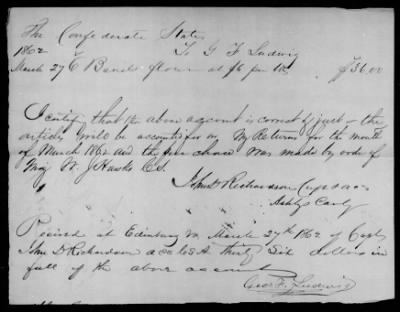 The Confederate States
1862 To G F Ludwig
March 27 6 Barrels flour at $6 per bbl $36.00
I certify that the above account is correct & just - the
articles will be accounted for on My Returns for the month
of March 1862 and the purchase was made by order of
Maj W. J Hawks C.S.
John D Richardson Capt & ACS
Ashbys Cavly
Received at Edinburg Va March 27th 1862 of Capt
John D Richardson A C S C S A thirty Six dollars in
full of the above account
Geo F. Ludwig